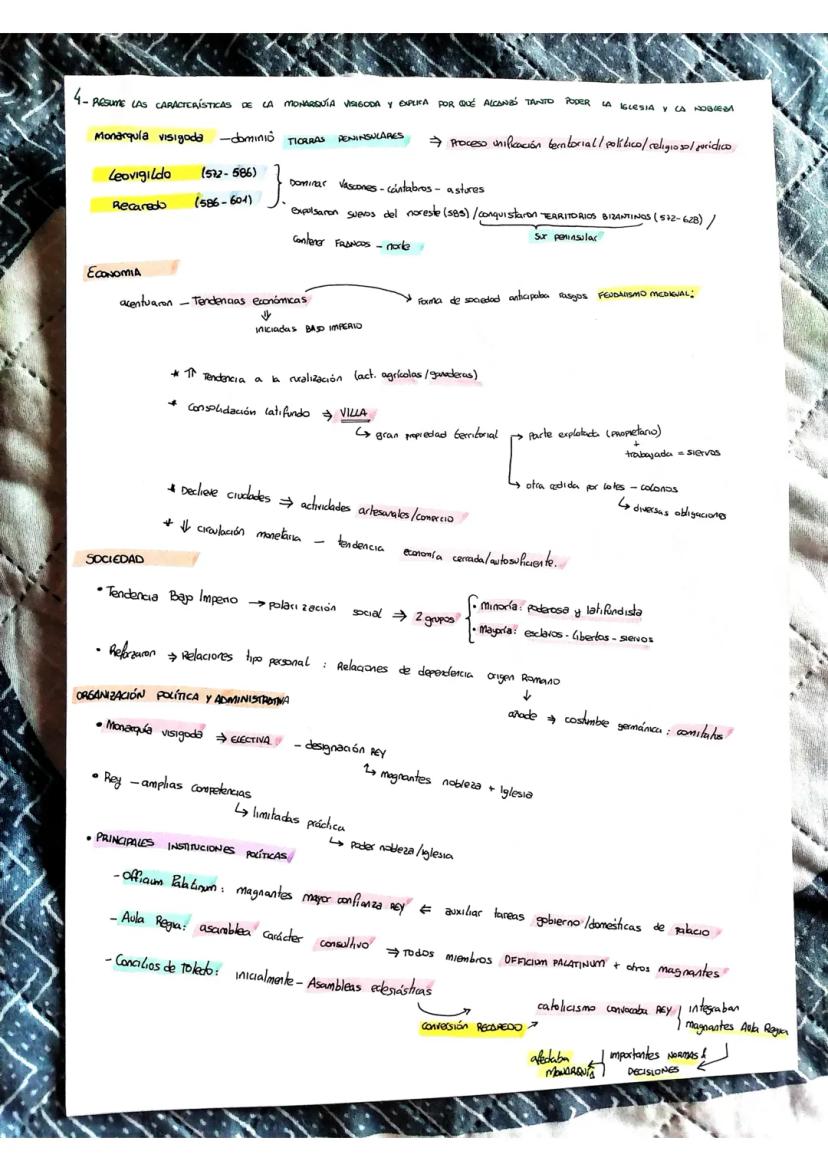 4- RESUME LAS CARACTERÍSTICAS DE LA MONARQUÍA VISIGODA Y EXPLICA POR QUÉ ALCANZÓ TANTO PODER LA IGLESIA Y LA NOBLEZA
Monarquía visigoda — dominió TIERRAS PENINSULARES ⇒ Proceso unificación territorial/político/religioso/jurídico
Leovigildo (572-586)
Recaredo (586-601)
Dominar vascones - cántabros - astures
· expulsaron suevos del noreste (585) / conquistaron TERRITORIOS BIZANTINOS (572-628) /
sur peninsular
Contener FRANCOS - norte
ECONOMIA
acentuaron — Tendencias económicas → Forma de sociedad anticipaba rasgos FEUDALISMO MEDIEVAL:
⇓
iniciadas BAJO IMPERIO
* ⇑ Tendencia a la ruralización (act. agrícolas/ganaderas)
* Consolidación latifundo ⇒ VILLA
↳ gran propiedad territorial
→ Parte explotada (PROPIETARIO)
+
trabajada = siervos
↳ otra cedida por lotes - colonos
↳ diversas obligaciones
* Declieve ciudades ⇒ actividades artesanales/comercio
* ⇓ circulación monetaria — tendencia economía cerrada/autosuficiente.
SOCIEDAD
• Tendencia Bajo Imperio → polarización social ⇒ 2 grupos
· Minoría: poderosa y latifundista
· Mayoría: esclavos - libertos - siervos
• Reforzaron ⇒ Relaciones tipo personal : Relaciones de dependencia origen Romano
↓
añade ⇒ costumbre germánica : comitatus
ORGANIZACIÓN POLÍTICA Y ADMINISTRATIVA
• Monarquía visigoda ⇒ ELECTIVA — designación REY
↳ magnantes nobleza + Iglesia
• Rey — amplias competencias
↳ limitadas práctica
↳ poder nobleza/iglesia
• PRINCIPALES INSTITUCIONES POLÍTICAS
- Officium Palatinum : magnantes mayor confianza REY ⇐ auxiliar tareas gobierno/domésticas de palacio
- Aula Regia: asamblea carácter consultivo ⇒ TODOS miembros OFFICIUM PALATINUM + otros magnantes
- Concilios de Toledo: inicialmente - Asambleas eclesiásticas
CONVERSIÓN RECAREDO → catolicismo convocaba REY
integraban
magnantes Aula Regia
importantes NORMAS &
DECISIONES
afectaba
MONARQUÍA